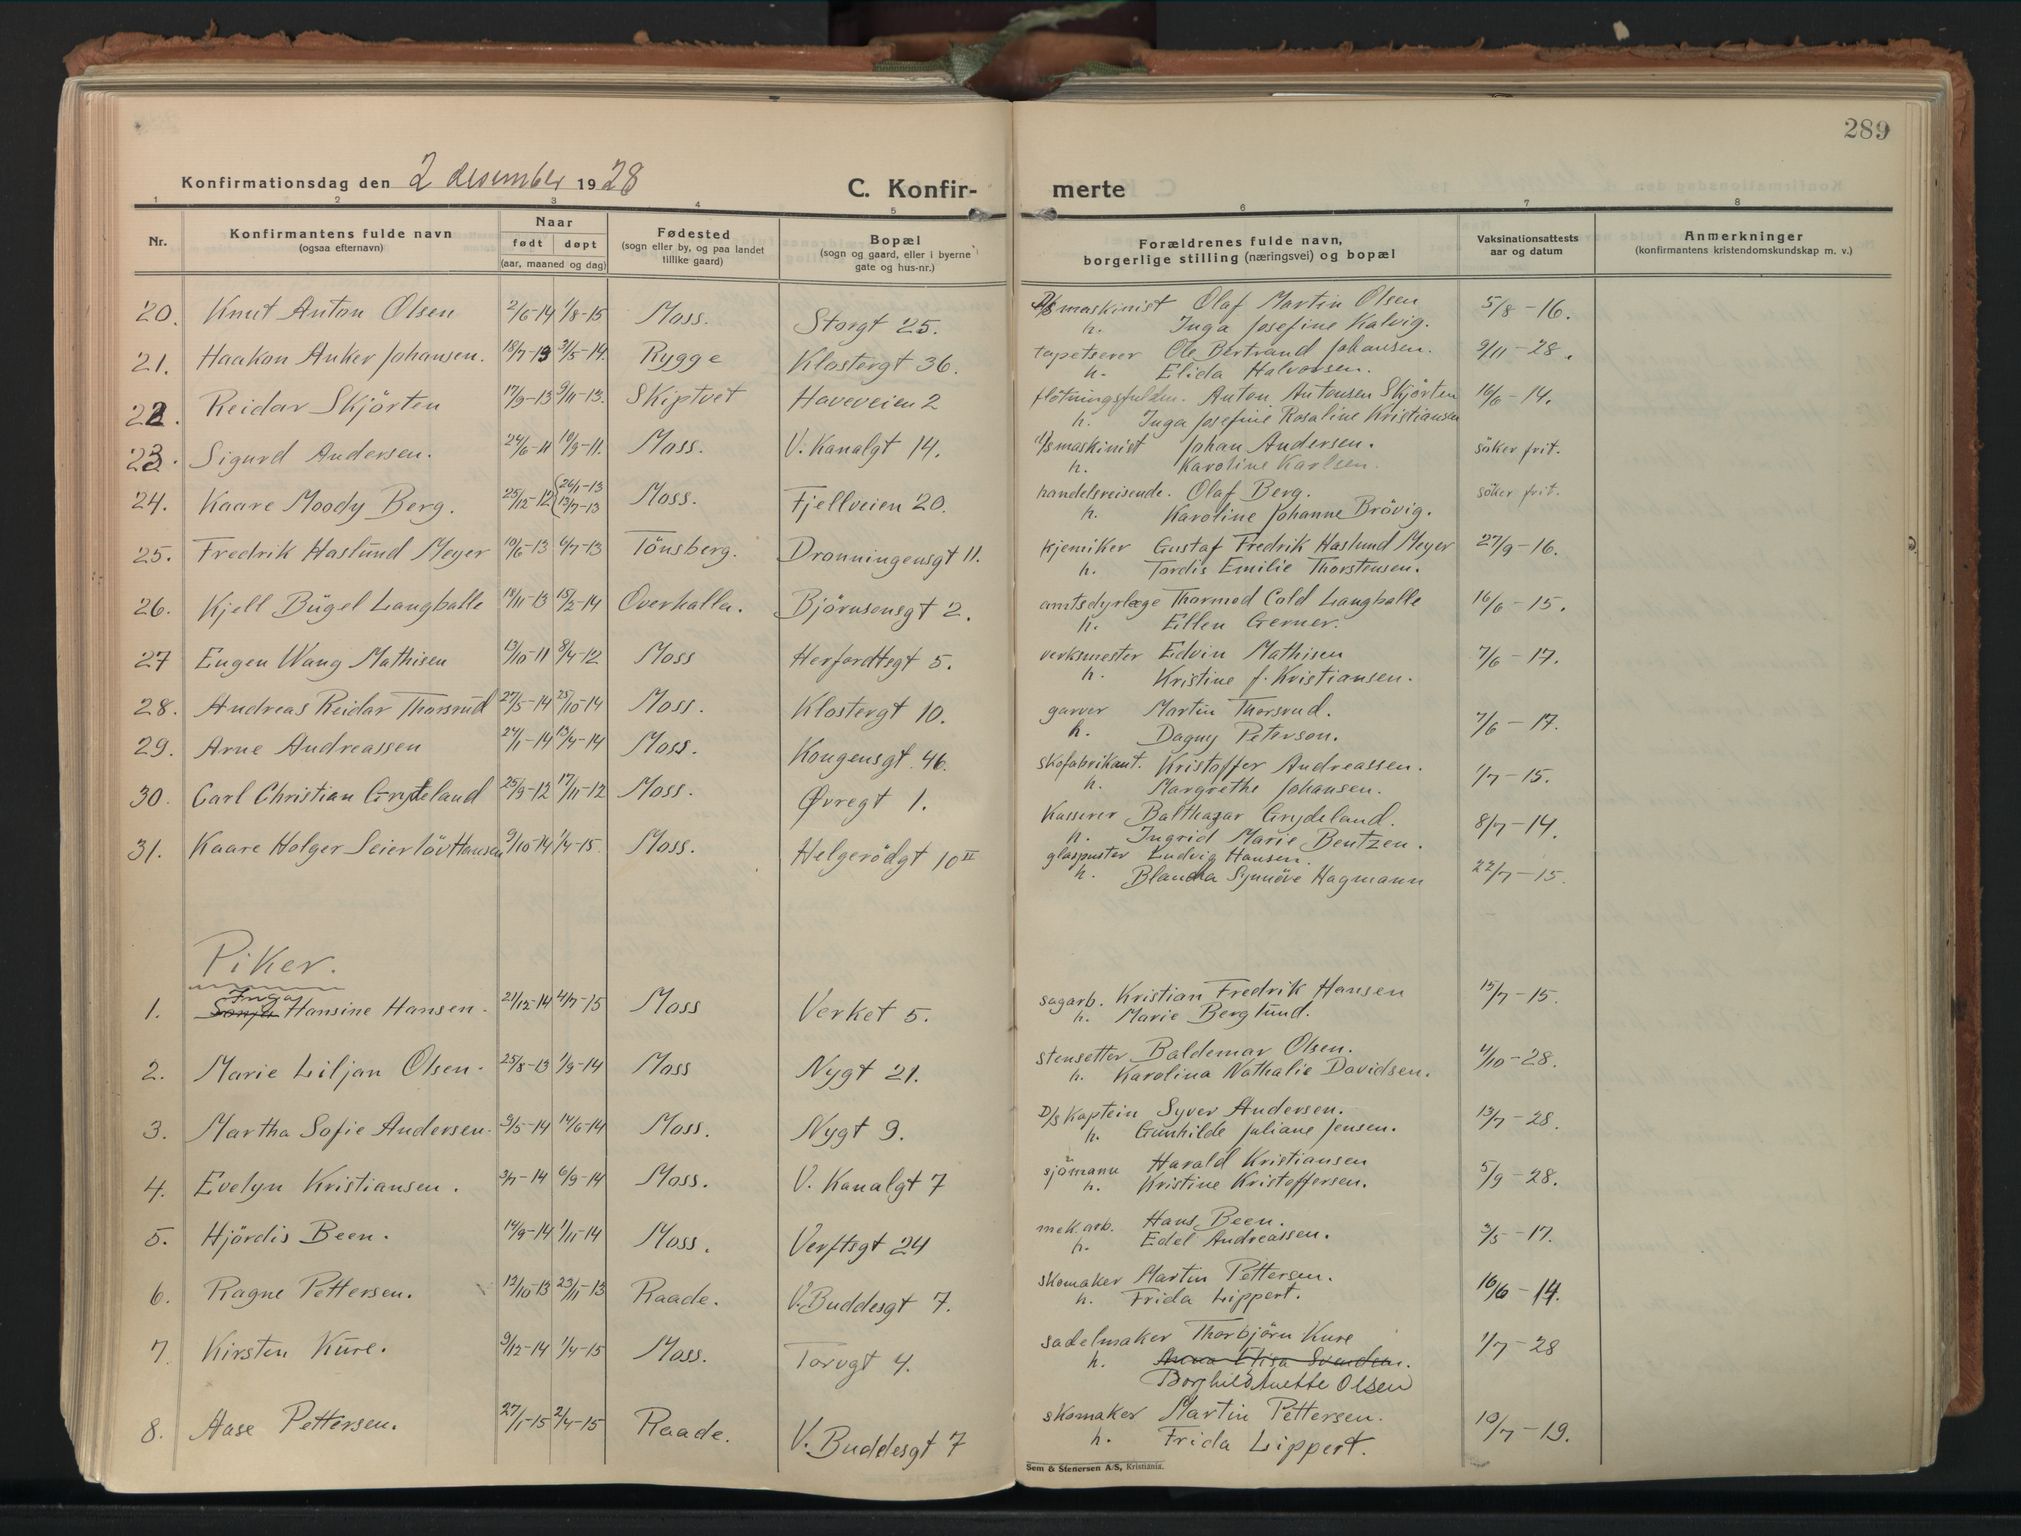 289
Konfirmationsdag den 2 desember 1928
C. Konfir- merte
1 2 3 4 5 6 7 8
Nr.
Konfirmantens fulde navn
(ogsaa efternavn)
Naar
født døpt
(aar, maaned og dag)
Fødested
(sogn eller by, og paa landet
tillike gaard)
Bopæl
(sogn og gaard, eller i byerne
gate og hus-nr.)
Forældrenes fulde navn,
borgerlige stilling (næringsvei) og bopæl
Vaksinationsattests
aar og datum
Anmerkninger
(konfirmantens kristendomskundskap m. v.)
20. Knut Anton Olsen 2/6-14 1/8-15 Moss. Storgt 25. D/S maskinist Olaf Martin Olsen 5/8-16.
h. Inga Josefine Kalvig.
21. Haakon Anker Johansen. 18/7-13 31/5-14. Rygge Klostergt 36. tapetserer Ole Bertrand Johansen. 9/11-28.
h. Elida Halvorsen.
22. Reidar Skjörten 17/9-13 9/11-13. Skiptvet Haveveien 2 flötningsfuldm. Anton Antonsen Skjörten 16/6-14.
h. Inga Josefine Rosaline Kristiansen
23. Sigurd Andersen. 24/6-11 10/9-11. Moss. V. Kanalgt 14. maskinist Johan Andersen. söker frit.
h. Karoline Karlsen.
24. Kaare Moody Berg. 25/12-12 26/1-13 13/7-13 Moss. Fjellveien 20. handelsreisende. Olaf Berg. söker frit.
h. Karoline Johanne Brövig.
25. Fredrik Haslund Meyer 10/6-13 6/7-13 Tönsberg. Dronningensgt 11. kjemiker Gustaf Fredrik Haslund Meyer 27/9-16.
h. Tordis Emilie Thorstensen.
26. Kjell Bügel Langballe 18/11-13 15/2-14 Overhalla. Björnsonsgt 2. amtsdyrlæge Thormod Cold Langballe 16/6-15.
h. Ellen Gerner.
27 Eugen Wang Mathisen 13/10-11 8/4-12 Moss Herfordtsgt 5. verksmester Edvin Mathisen 7/6-17.
h. Kristine f. Kristiansen.
28. Andreas Reidar Thorsrud 27/5-14 25/10-14 Moss. Klostergt 10. garver Martin Thorsrud. 7/6-17.
h. Dagny Peterson.
29. Arne Andreassen 24/1-14 13/4-14 Moss. Kongensgt. 46. skofabrikant. Kristoffer Andreassen. 1/7-15.
h. Margrethe Johansen.
30. Carl Christian Grydeland 25/9-12 17/11-12 Moss. Øvregt 1. Kasserer Balthazar Grydeland. 8/7-14.
h. Ingrid Marie Bentzen.
31. Kaare Holger Seierlöv Hansen 9/10-14 1/4-15. Moss. Helgerödgt 10 II glaspuster Ludvig Hansen. 22/7-15.
h. Blanca Synnöve Hagmann
Piker.
Inga
1. Sonja Hansine Hansen. 21/12-14 4/7-15 Moss Verket 5. sagarb. Kristian Fredrik Hansen 15/7-15.
h. Marie Berglund.
2. Marie Liljan Olsen. 25/8-13 1/9-14 Moss Nygt 21. stensetter Baldemar Olsen. 4/10-28.
h. Karolina Nathalie Davidsen.
3. Martha Sofie Andersen. 9/5-14 14/6-14 Moss. Nygt 9. D/S Kaptein Syver Andersen. 13/7-28.
h. Gunhilde Juliane Jensen.
4. Evelyn Kristiansen. 3/7-14 6/9-14 Moss. V. Kanalgt 7 sjömann Harald Kristiansen 5/9-28.
h. Kristine Kristoffersen.
5. Hjördis Been. 14/9-14 1/11-14 Moss. Verftsgt 24 mek. arb. Hans Been. 3/5-17.
h. Edel Andreassen.
6. Ragne Pettersen. 12/10-13 23/11-13 Raade. V. Buddesgt 7. skomaker Martin Pettersen. 16/6-14.
h. Frida Lippert.
7. Kirsten Kure. 9/12-14 1/4-15 Moss. Torvgt 4. sadelmaker Thorbjörn Kure 1/7-28
h. Anna Elisa Svendsen.
Borghild Anette Olsen
8. Aase Pettersen. 27/1-15 2/4-15 Raade. V. Buddesgt 7 skomaker Martin Pettersen. 10/7-19.
h. Frida Lippert.
Sem & Stenersen A/S, Kristiania.